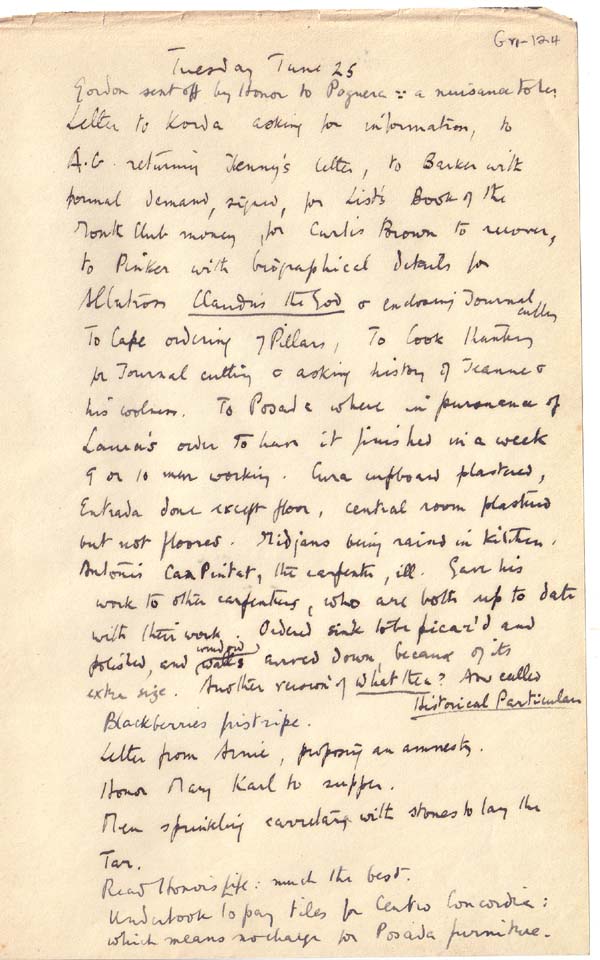 Gr-124
Tuesday June 25
Gordon sent off by Honor to Poguera :: a nuisance to her
Letter to Korda asking for information, to
A.G. returning Kenny's letter, to Barker with
formal demand, signed, for List's Book of the
Month Club money, for Curtis Brown to recover,
to Pinker with biographical details for
Albatross Claudius the God & enclosing Journal
cutting
To Cape ordering 7 Pillars, To Cook Hunting
for Journal cutting & asking history of Jeanne &
his             To Posada where in pursuance of
Laura's order to have it finished in a week
9 or 10 men working. Cura cupboard plastered,
Entrada done except floor, central room plastered
but not floored. Midjans being raised in kitchen.
Antonis CanPintat, the carpenter, ill. Gave his
work to other carpenters, who are both up to date
with their work. Ordered sink to be picar'd and
window
polished, and walls        down, because of its
extra size. Another version of What then? Now called
Historical Particulars
Blackberries first ripe.
Letter from Arnie, proposing an amnesty.
Honor Mary Karl to supper.
Men sprinkling carretera with stones to lay the
Tar.
Read Honor's fifth: much the best.
Undertook to pay tiles for Centro Concordia:
which means no charge for Posada furniture.